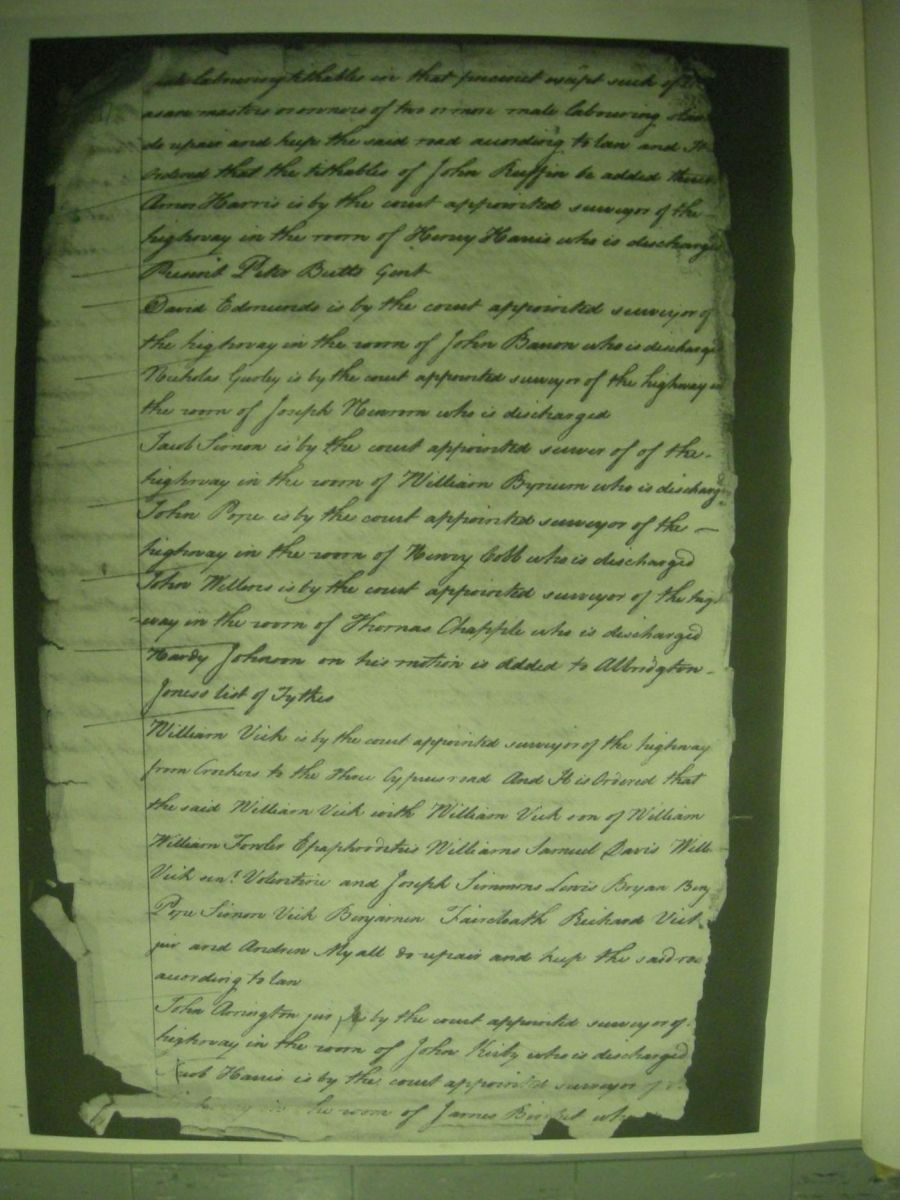 male labouring tithables in that precinct except such of
as are masters or owners of two or more male labouring
do repair and keep the said road acording to law and It
ordered that the tithables of John Ruffin be added
Amos Harris is by the court appointed surveyor of the
highway in the room of Henry Harris who is discharged
Present Peter Butts Gent
David Edmunds is by the court appointed surveyor of
the highway in the room of John Barron who is discharged
Nicholas Gurley is by the court appointed surveyor of the highway in
the room of Joseph Newsom who is discharged
Jacob Simon is by the court appointed of of the
highway in the room of William Bynum who is discharg
John Pope is by the court appointed surveyor of the
highway in the room of Henry Cobb who is discharged
John is by the court appointed surveyor of the high
way in the room of Thomas Chapple who is discharged
Hardy Johnson on his motion is added to Albridgton
Joness list of Tythes
William Vick is by the court appointed surveyor of the highway
from Crockers to the three Cypress road And It is Ordered that
the said William Vick with William Vick son of William
William Fowler Epaphroditus Williams Samuel Davis Will
Vick senr. Volentine and Joseph Simmons Lewis Bryan Benj
Pope Simon Vick Benjamin Faircloath Richard Vick
jur and Andrew Myall do repair and keep the said roa
acording to law
John Arrington jur is by the court appointed surveyor of
highway in the room of John Kirby who is discharged
Jacob Harris is by the court appointed surveyor
in the room of James